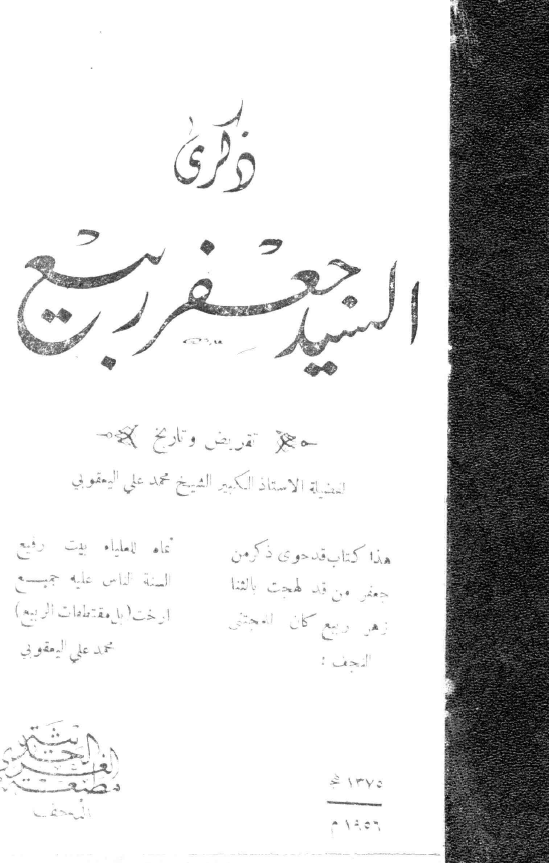 ذكرى
السيد جعفر ربيع
تقريض وتاريخ
لفضيلة الاستاذ الكبير الشيخ محمد علي اليعقوبي
هذا كتاب قد حوى ذكر من نماه للعلياء بيت رفيع
جعفر من قد لهجت بالثنا السنة الناس عليه جميع
زهر ربيع كان للمجتنى ارخت (بل مقتطفات الربيع)
النجف : محمد علي اليعقوبي
مطبعة الغري الحديثة
النجف
١٣٧٥ هـ
١٩٥٦ م